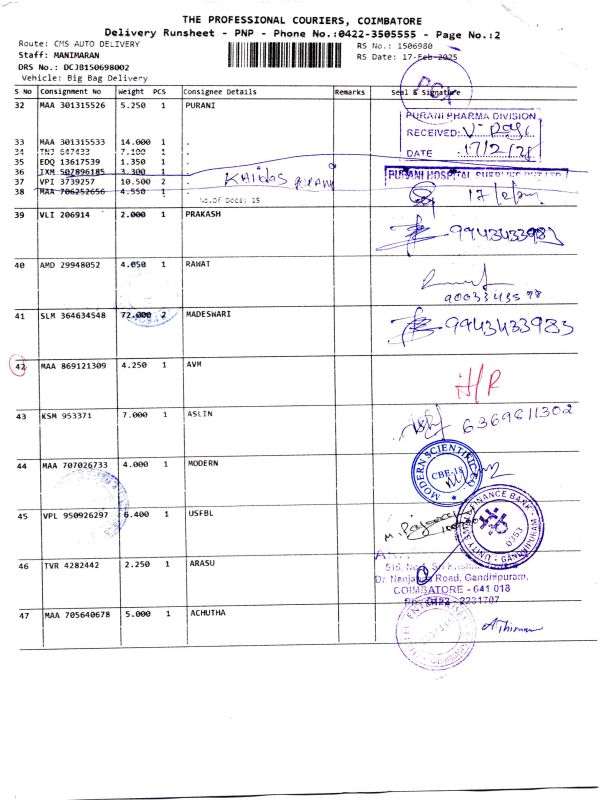 THE PROFESSIONAL COURIERS, COIMBATORE
Delivery Runsheet - PNP - Phone No.:0422-3505555 - Page No.:2
Route: CMS AUTO DELIVERY
RS No.: 1506980
Staff: MANIMARAN
RS Date: 17-Feb-2025
DRS No.: DCJB150698002
Vehicle: Big Bag Delivery
S No Consignment No Weight PCS Consignee Details Remarks Seal & Signature
32 MAA 301315526 5.250 1 PURANI
PURANI PHARMA DIVISION
RECEIVED:
DATE 17/2/25
33 MAA 301315533 14.000 1 .
34 TNJ 647433 7.100 1 .
35 EDQ 13617539 1.350 1 .
36 IXM 507896185 3.300 1 .
PURANI HOSPITAL SUPPLIES PVT LTD
37 VPI 3739257 10.500 2 .
38 MAA 706252656 4.550 1 .
No.Of Docs: 15
39 VLI 206914 2.000 1 PRAKASH
9943433983
40 AMD 29948052 4.050 1 RAWAT
41 SLM 364634548 72.000 2 MADESWARI
9943433983
42 MAA 869121309 4.250 1 AVM
43 KSM 953371 7.000 1 ASLIN
6369611302
44 MAA 707026733 4.000 1 MODERN
MODERN SCIENTIFIC
CBE-18
45 VPL 950926297 6.400 1 USFBL
UNITY SMALL FINANCE BANK
GANDHIPURAM
46 TVR 4282442 2.250 1 ARASU
Road, Gandhipuram,
COIMBATORE - 641 018
47 MAA 705640678 5.000 1 ACHUTHA